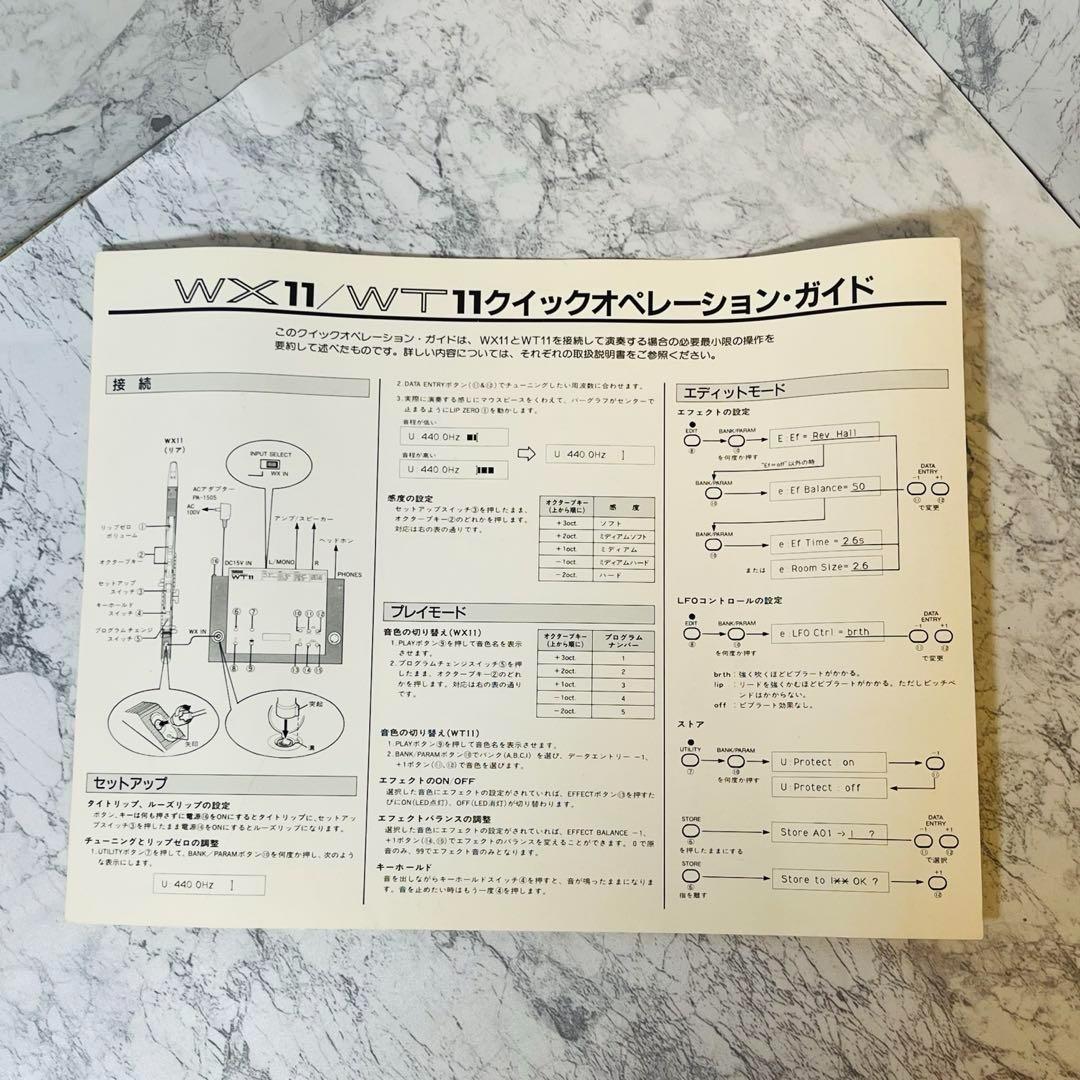 WX11/WT11クイックオペレーション・ガイド
このクイックオペレーション・ガイドは、WX11とWT11を接続して演奏する場合の必要最小限の操作を
要約して述べたものです。詳しい内容については、それぞれの取扱説明書をご参照ください。
接続
WX11
(リア)
INPUT SELECT
WX IN
ACアダプター
PA-1505
AC
100V
アンプ/スピーカー
ヘッドホン
リップゼロ ①
ボリューム
② オクターブキー
セットアップ
スイッチ ③
キーホールド
スイッチ ④
プログラムチェンジ
スイッチ ⑤
⑯
DC15V IN
L/MONO
R
PHONES
WT11
⑥ ⑦ ⑩ ⑪ ⑫
WX IN
⑧ ⑨ ⑬ ⑭ ⑮
矢印
突起
溝
セットアップ
タイトリップ、ルーズリップの設定
ボタン、キーは何も押さずに電源⑯をONにするとタイトリップに、セットアッ
プスイッチ③を押したまま電源⑯をONにするとルーズリップになります。
チューニングとリップゼロの調整
1.UTILITYボタン⑦を押して、BANK/PARAMボタン⑩を何度か押し、次のよう
な表示にします。
U: 440.0Hz
2.DATA ENTRYボタン(⑪&⑫)でチューニングしたい周波数に合わせます。
3.実際に演奏する感じにマウスピースをくわえて、バーグラフがセンターで
止まるようにLIP ZERO①を動かします。
音程が低い
U: 440.0Hz
音程が高い
U: 440.0Hz
U: 440.0Hz
感度の設定
セットアップスイッチ③を押したまま、
オクターブキー②のどれかを押します。
対応は右の表の通りです。
オクターブキー
(上から順に)
感 度
+3oct. ソフト
+2oct. ミディアムソフト
+1oct. ミディアム
−1oct. ミディアムハード
−2oct. ハード
プレイモード
音色の切り替え(WX11)
1.PLAYボタン⑨を押して音色名を表示
させます。
2.プログラムチェンジスイッチ⑤を押
したまま、オクターブキー②のどれ
かを押します。対応は右の表の通り
です。
オクターブキー
(上から順に)
プログラム
ナンバー
+3oct. 1
+2oct. 2
+1oct. 3
−1oct. 4
−2oct. 5
音色の切り替え(WT11)
1.PLAYボタン⑨を押して音色名を表示させます。
2.BANK/PARAMボタン⑩でバンク(A,B,C,I)を選び、データエントリー −1、
+1ボタン(⑪、⑫)で音色を選びます。
エフェクトのON/OFF
選択した音色にエフェクトの設定がされていれば、EFFECTボタン⑬を押すた
びにON(LED点灯)、OFF(LED消灯)が切り替わります。
エフェクトバランスの調整
選択した音色にエフェクトの設定がされていれば、EFFECT BALANCE −1、
+1ボタン(⑭、⑮)でエフェクトのバランスを変えることができます。0で原
音のみ、99でエフェクト音のみとなります。
キーホールド
音を出しながらキーホールドスイッチ④を押すと、音が鳴ったままになりま
す。音を止めたい時はもう一度④を押します。
エディットモード
エフェクトの設定
EDIT
⑧
BANK/PARAM
⑩
を何度か押す
E:Ef= Rev Hall
"Ef=off"以外の時
BANK/PARAM
⑩
e:Ef Balance= 50
DATA
ENTRY
−1 +1
⑪ ⑫
で変更
BANK/PARAM
⑩
e:Ef Time= 2.6s
または
e:Room Size= 2.6
LFOコントロールの設定
EDIT
⑧
BANK/PARAM
⑩
を何度か押す
e:LFO Ctrl= brth
DATA
ENTRY
−1 +1
⑪ ⑫
で変更
brth:強く吹くほどビブラートがかかる。
lip :リードを強くかむほどビブラートがかかる。ただしピッチベ
ンドはかからない。
off :ビブラート効果なし。
ストア
UTILITY
⑦
BANK/PARAM
⑩
を何度か押す
U:Protect: on
−1
⑪
U:Protect: off
STORE
⑥
を押したままにする
Store A01→I ?
DATA
ENTRY
−1 +1
⑪ ⑫
で選択
STORE
⑥
指を離す
Store to I** OK ?
+1
⑫